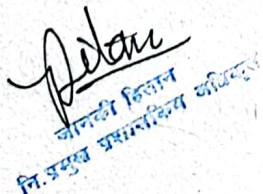 जानकी हिसान
नि. प्रमुख प्रशासकिय अधिकृत